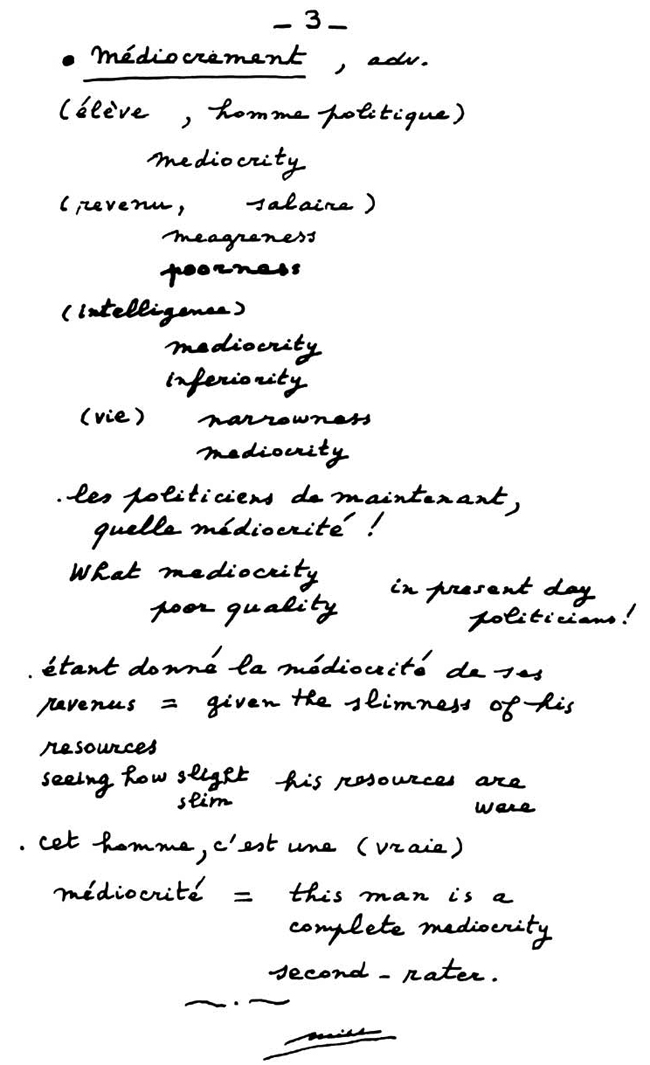 - 3 -
• Médiocrement, adv.
(élève, homme politique)
mediocrity
(revenu, salaire)
meagreness
poorness
(intelligence)
mediocrity
inferiority
(vie) narrowness
mediocrity
. les politiciens de maintenant,
quelle médiocrité !
What mediocrity in present day
poor quality politicians!
. étant donné la médiocrité de ses
revenus = given the slimness of his
resources
seeing how slight his resources are
slim were
. cet homme, c'est une (vraie)
médiocrité = this man is a
complete mediocrity
second-rater.